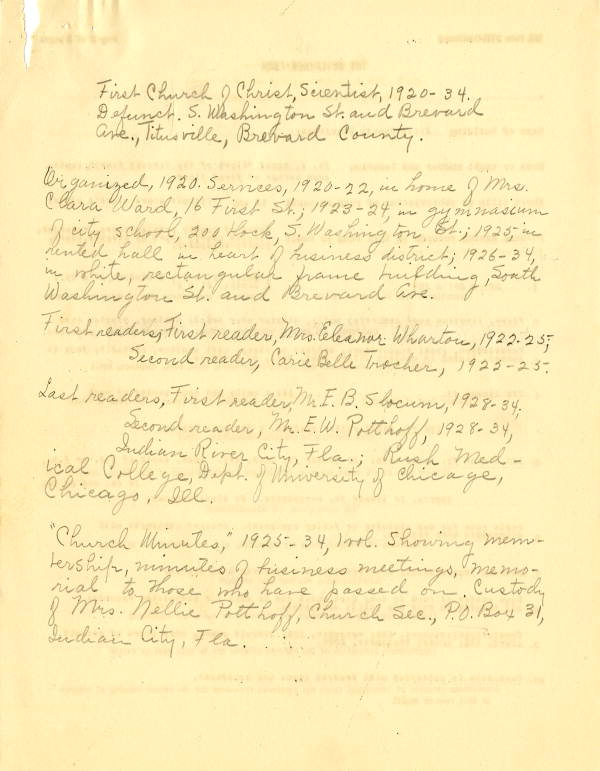 First Church of Christ, Scientist, 1920-34.
Defunct. S. Washington St. and Brevard
Ave., Titusville, Brevard County.
Organized, 1920. Services, 1920-22, in home of Mrs.
Clara Ward, 16 First St.; 1923-24, in gymnasium
of city school, 200 block, S. Washington St.; 1925, in
rented hall in heart of business district; 1926-34,
in white, rectangular frame building, South
Washington St. and Brevard Ave.
First readers, First reader, Mrs. Eleanor Wharton, 1922-25;
Second reader, Carie Belle Trocher, 1925-25.
Last readers, First reader, Mr. E. B. Slocum, 1928-34.
Second reader, Mr. E. W. Potthoff, 1928-34,
Indian River City, Fla.; Rush Med-
ical College, Dept. of University of Chicago,
Chicago, Ill.
"Church Minutes," 1925-34, 1 vol. Showing mem-
bership, minutes of business meetings, memo-
rial to those who have passed on. Custody
of Mrs. Nellie Potthoff, Church Sec., P.O. Box 31,
Indian City, Fla.